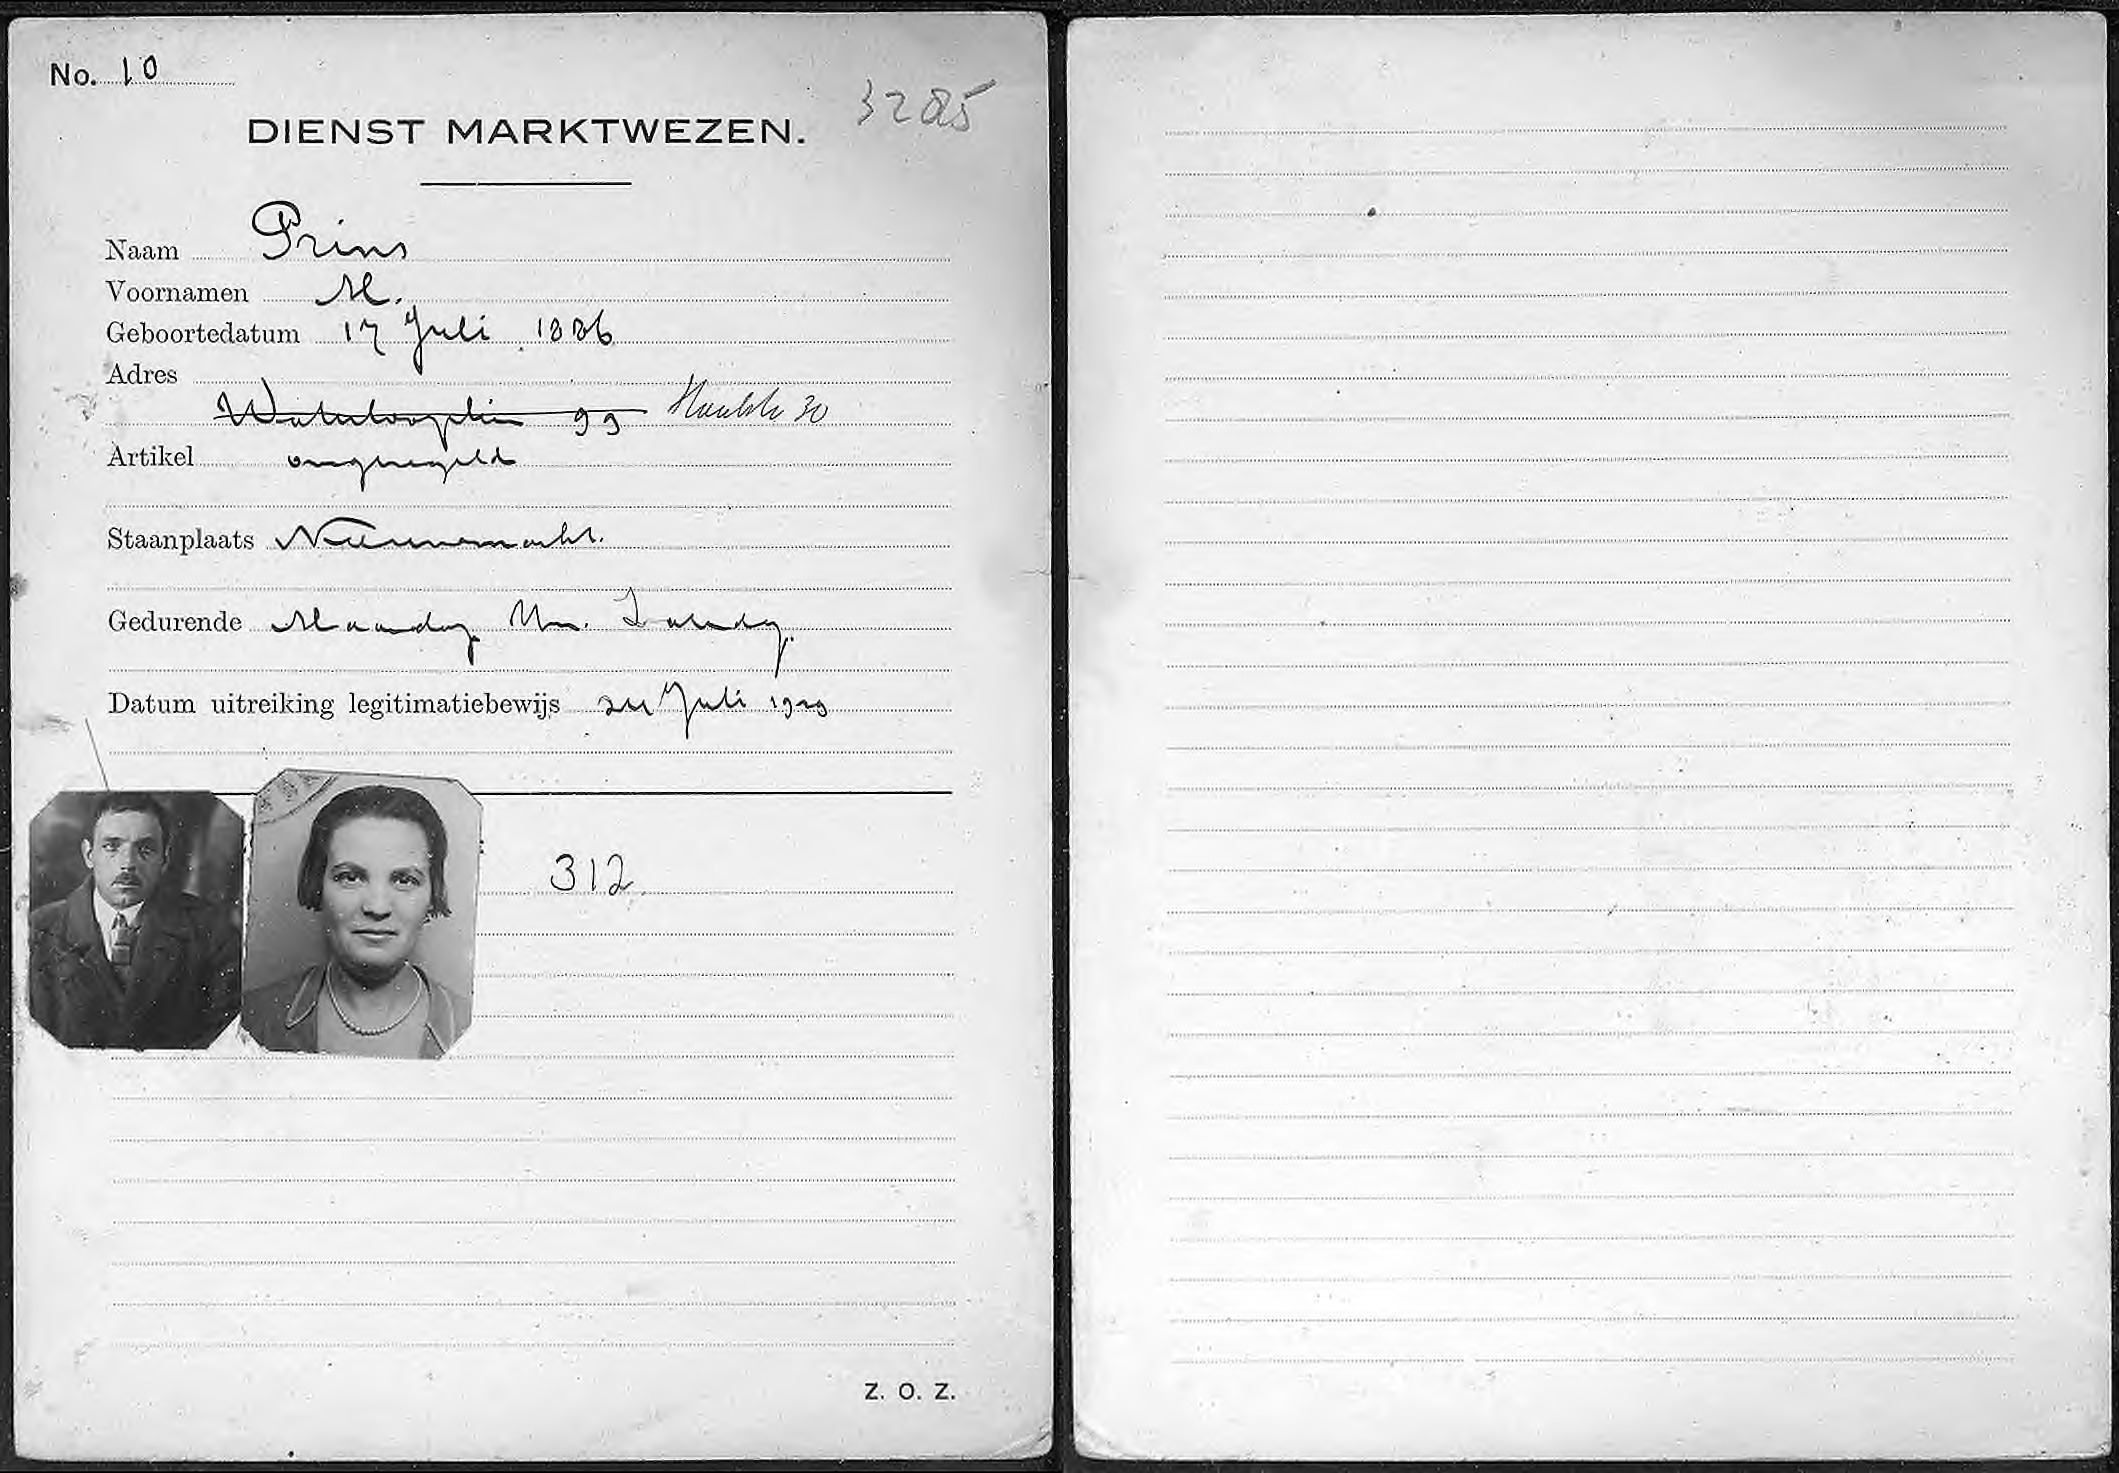 No. 10
3285
DIENST MARKTWEZEN.
Naam Prins
Voornamen M.
Geboortedatum 17 Juli 1886
Adres
Waterlooplein 99 Houtstr 30
Artikel ongeregeld
Staanplaats Nieuwmarkt.
Gedurende Maandag t/m. Zaterdag.
Datum uitreiking legitimatiebewijs 24 Juli 1929
312
Z. O. Z.